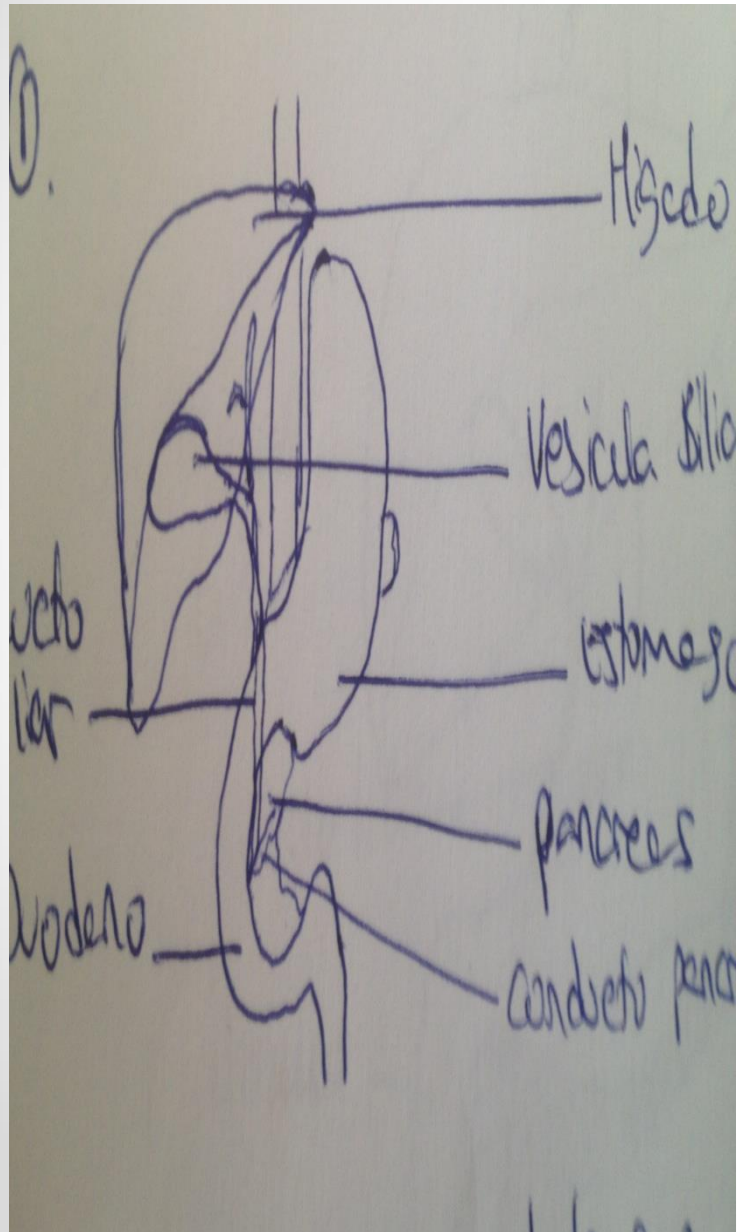 1.
Higado
Vesicula Bilia
ucto
liar
estomago
pancreas
Duodeno
conducto pancr